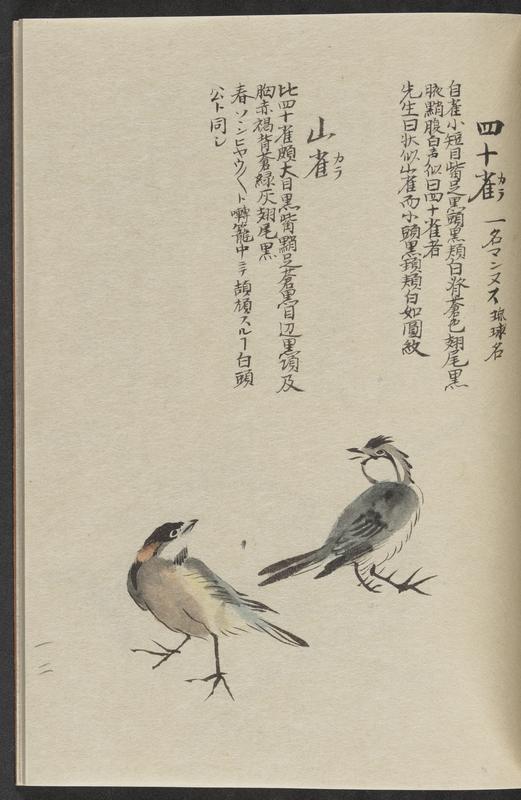 四十雀カラ 一名マンヌス琉球名
自雀小短目觜足黒頭黒頬白脊蒼色翅尾黒
腋黲腹白声似曰四十雀者
先生曰状似山雀而小頭黒頚頬白如圓紋
山雀カラ
比四十雀頗大目黒觜黲足蒼黒目辺黒頭及
胸赤褐背蒼緑灰翅尾黒
春ツ、ンヒヤウ〱ト囀籠中ニテ頡頏スルヿ白頭
公ト同シ